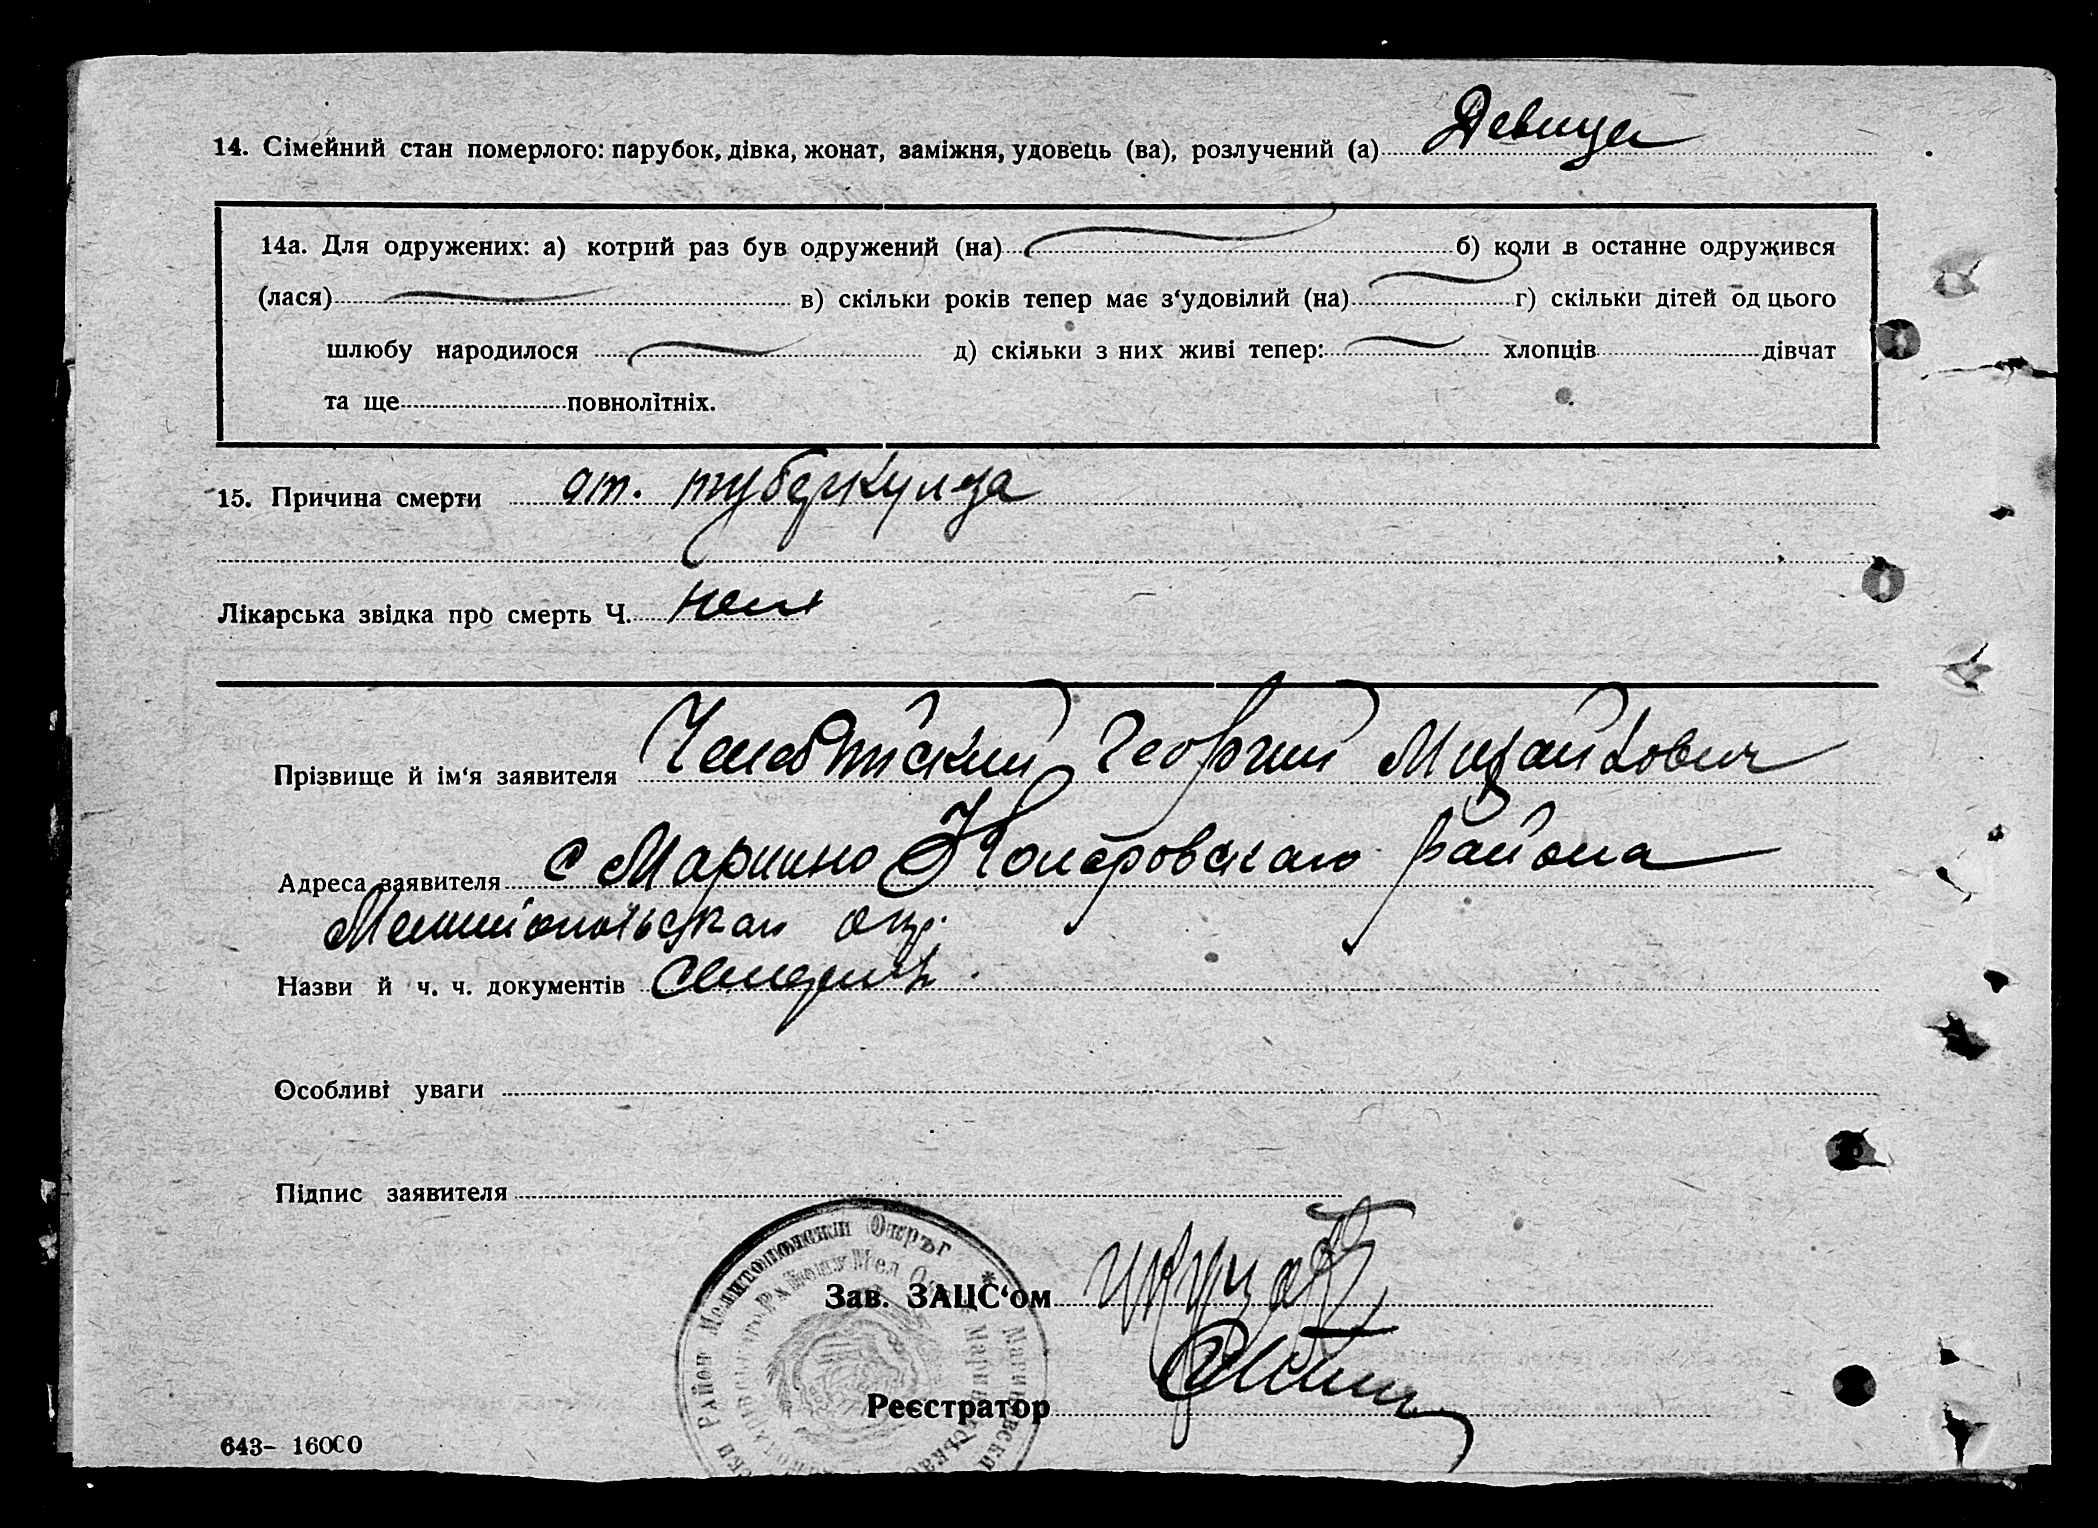 14. Сімейний стан померлого: парубок, дівка, жонат, заміжня, удовець (ва), розлучений (а) Девица
14а. Для одружених: а) котрий раз був одружений (на) б) коли в останне одружився
(лася) в) скільки років тепер має з‘удовілий (на) г) скільки дітей од цього
шлюбу народилося д) скільки з них живі тепер: хлопців дівчат
та ще повнолітніх.
15. Причина смерти от. туберкулза
Лікарська звідка про смерть Ч. нет
Прізвище й ім‘я заявителя Георгий Михайлович
Адреса заявителя с Мариино района
Мелитопольская окр.
Назви й ч. ч. документів
Особливі уваги
Підпис заявителя
Район Мелитополски Окръг *
Зав. ЗАЦС‘ом
Реєстратор
643– 16000